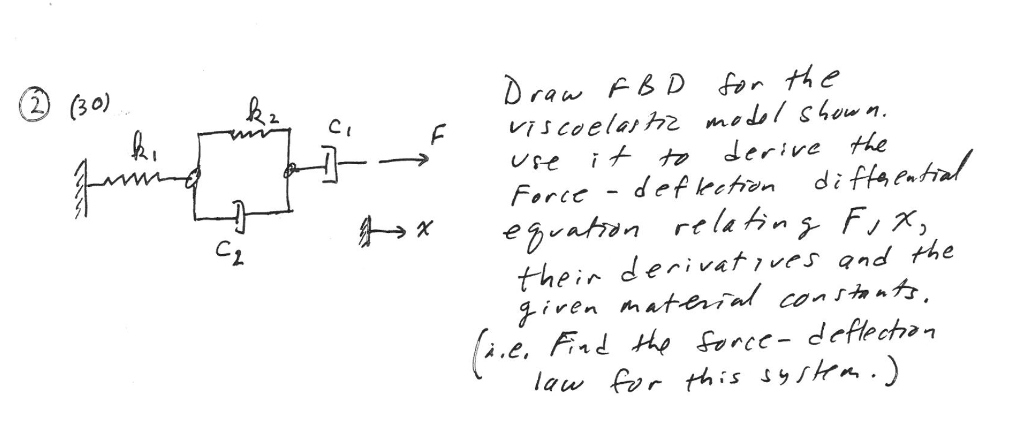 ② (30)
k1
k2
C1
F
C2
x
Draw FBD for the
viscoelastic model shown.
Use it to derive the
Force - deflection differential
equation relating F, x,
their derivatives and the
given material constants.
(i.e. Find the force - deflection
law for this system.)